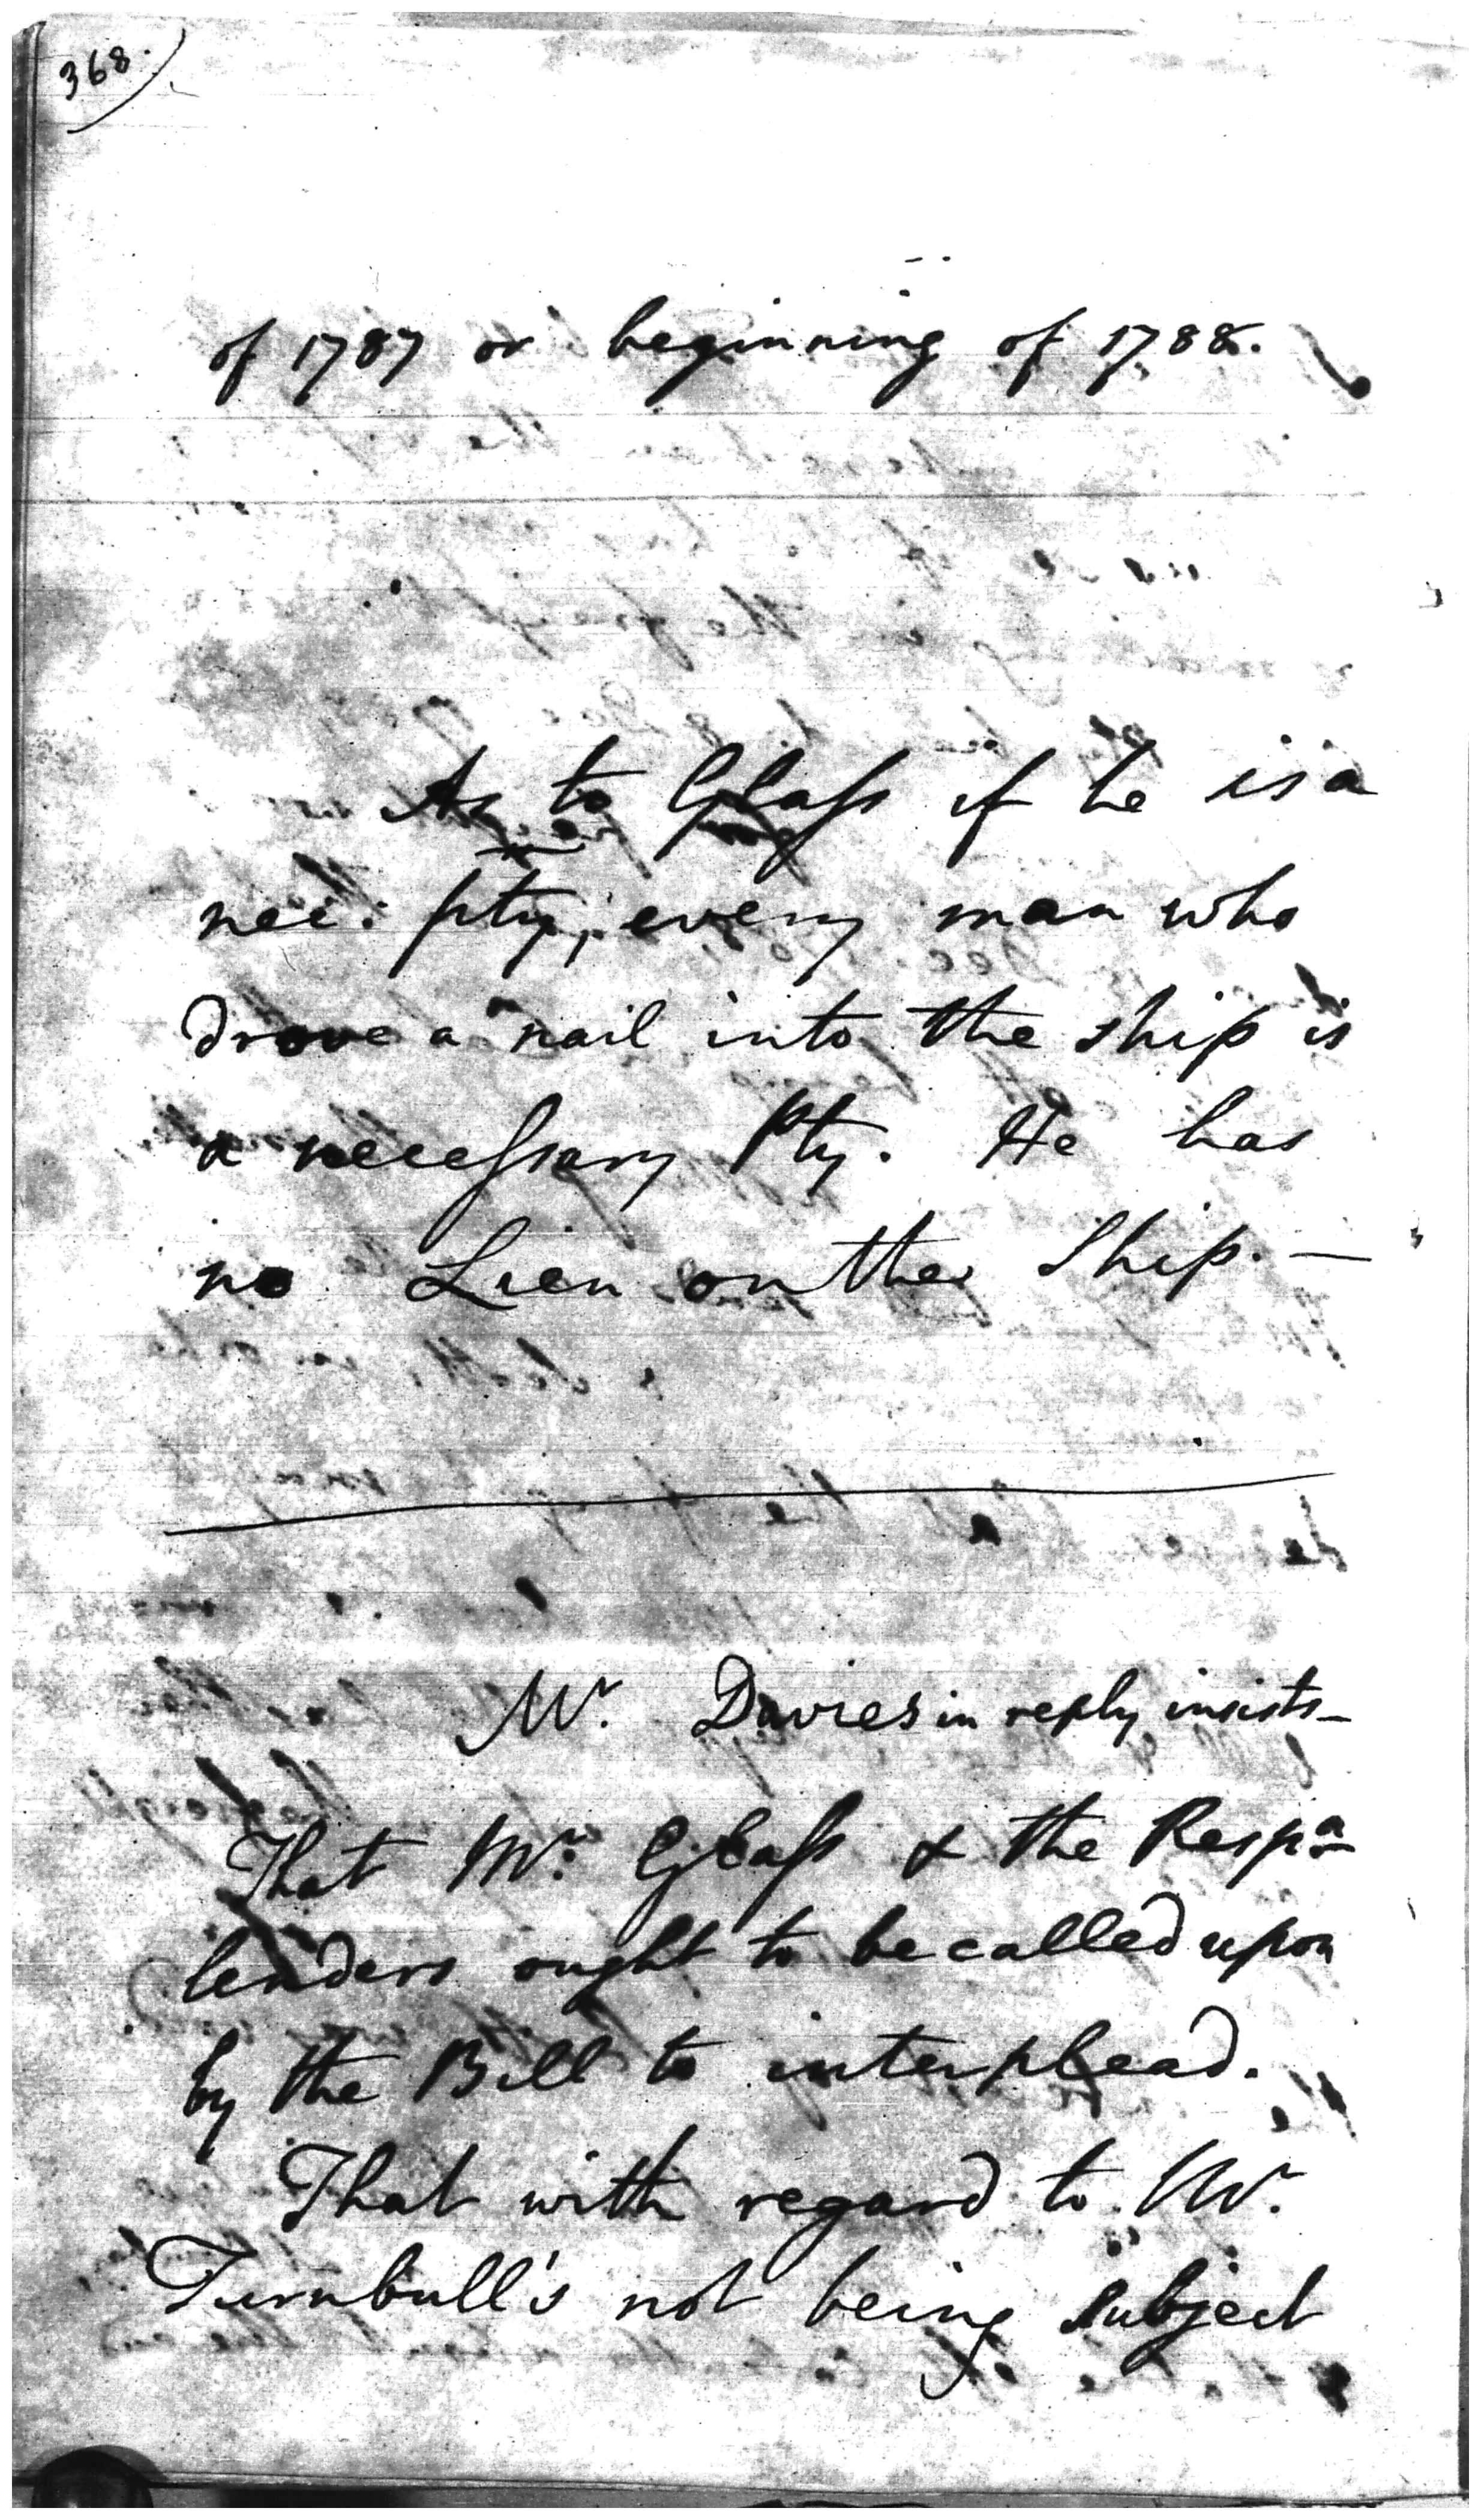 368.
of 1787 or beginning of 1788.
As to Glass if he is a
nec: pty, every man who
drove a nail into the ship is
a necessary Pty. He has
no Lien on the Ship. —
Mr. Davies in reply insists —
That Mr. Glass & the Respa
lenders ought to be called upon
by the Bill to interplead.
That with regard to Mr.
Turnbull's not being subject